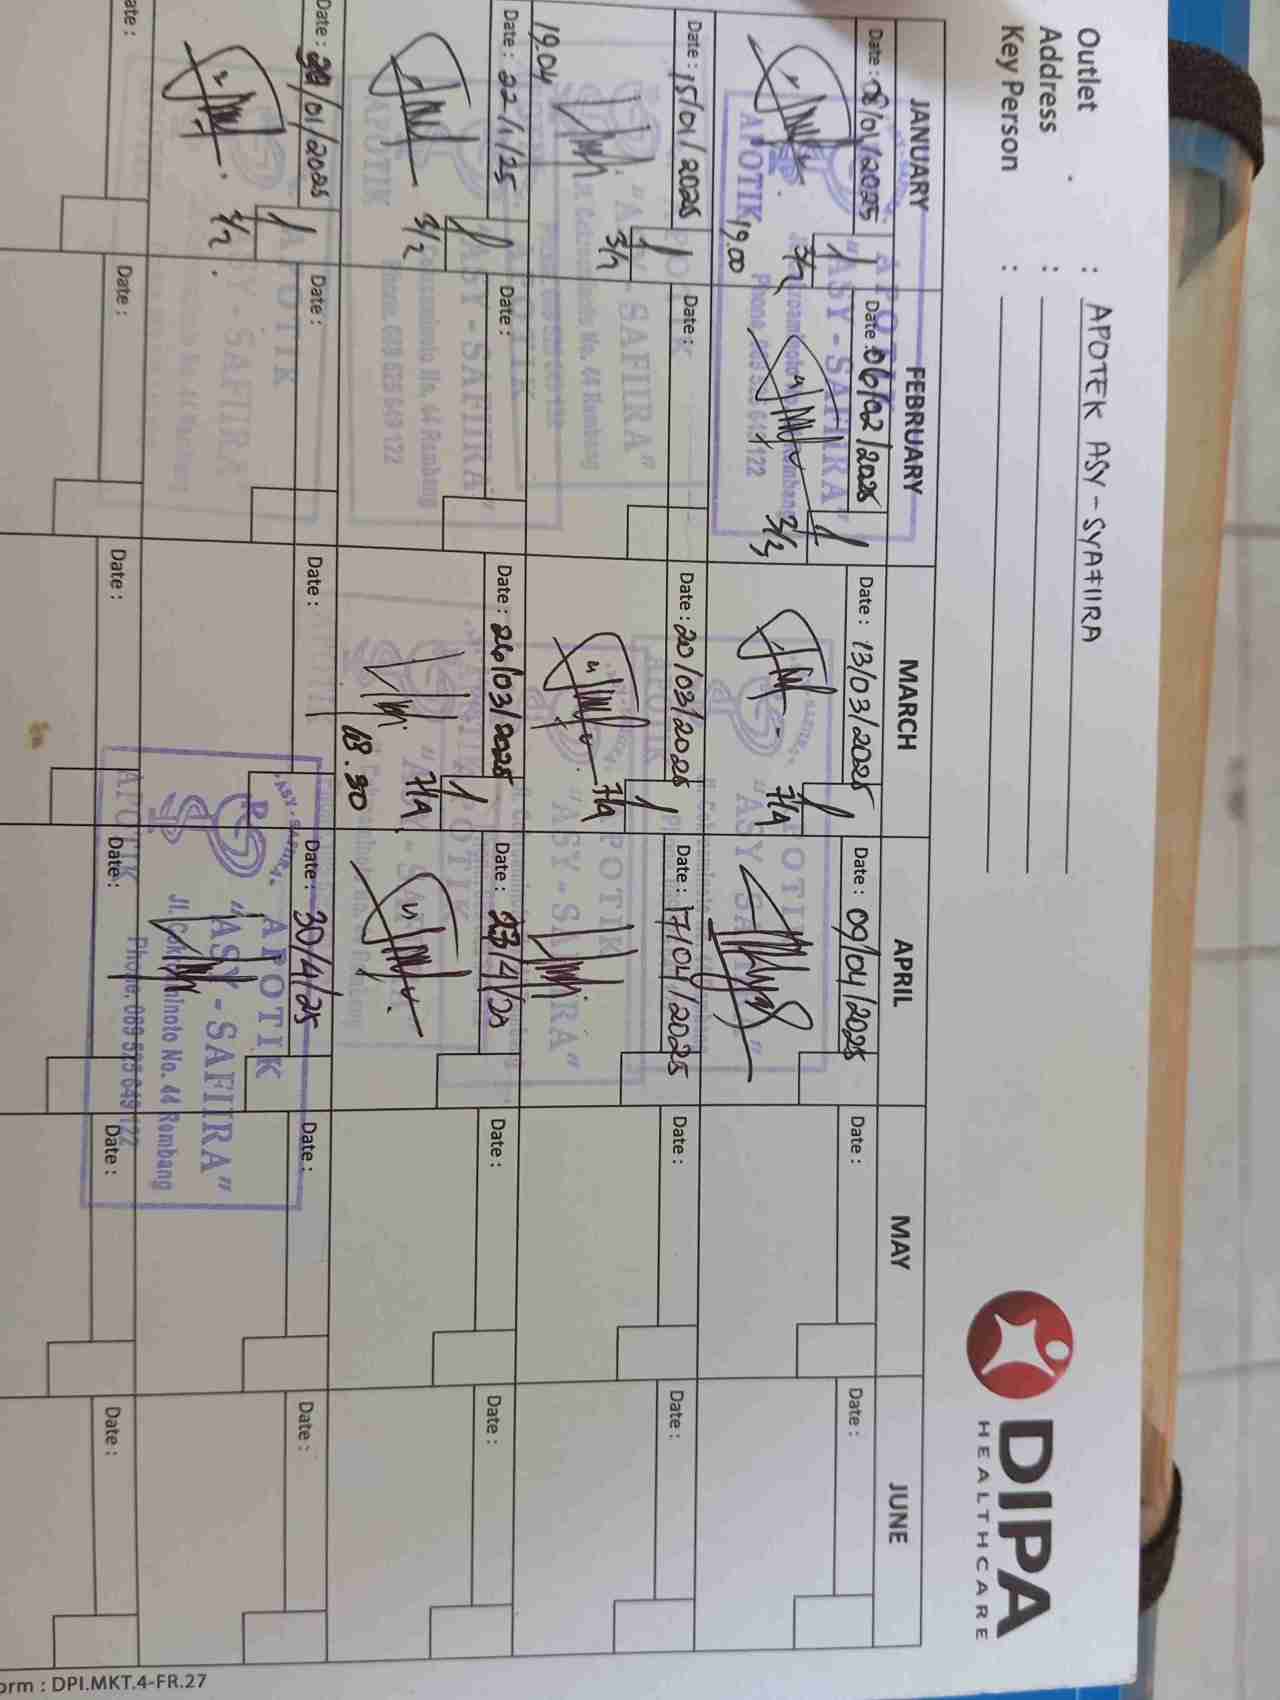 Outlet : APOTEK ASY-SYAFIIRA
Address :
Key Person :
DIPA
HEALTHCARE
JANUARY FEBRUARY MARCH APRIL MAY JUNE
Date : 08/01/2025 Date : 06/02/2025 Date : 13/03/2025 Date : 09/04/2025 Date : Date :
3/2 3/3 7/4
19.00
APOTIK
"ASY-SAFIIRA"
Date : 15/01/2025 Date : Date : 20/03/2025 Date : 17/04/2025 Date : Date :
3/2 7/4
19.04
Date : 22/1/25 Date : Date : 26/03/2025 Date : 23/4/25 Date : Date :
3/2 7/4
18.30
Date : 29/01/2025 Date : Date : Date : 30/4/25 Date : Date :
3/2
APOTIK
"ASY-SAFIIRA"
Jl. Cokroaminoto No. 44 Rembang
Phone. 089 525 649 122
APOTIK
ate : Date : Date : Date : Date : Date :
orm : DPI.MKT.4-FR.27